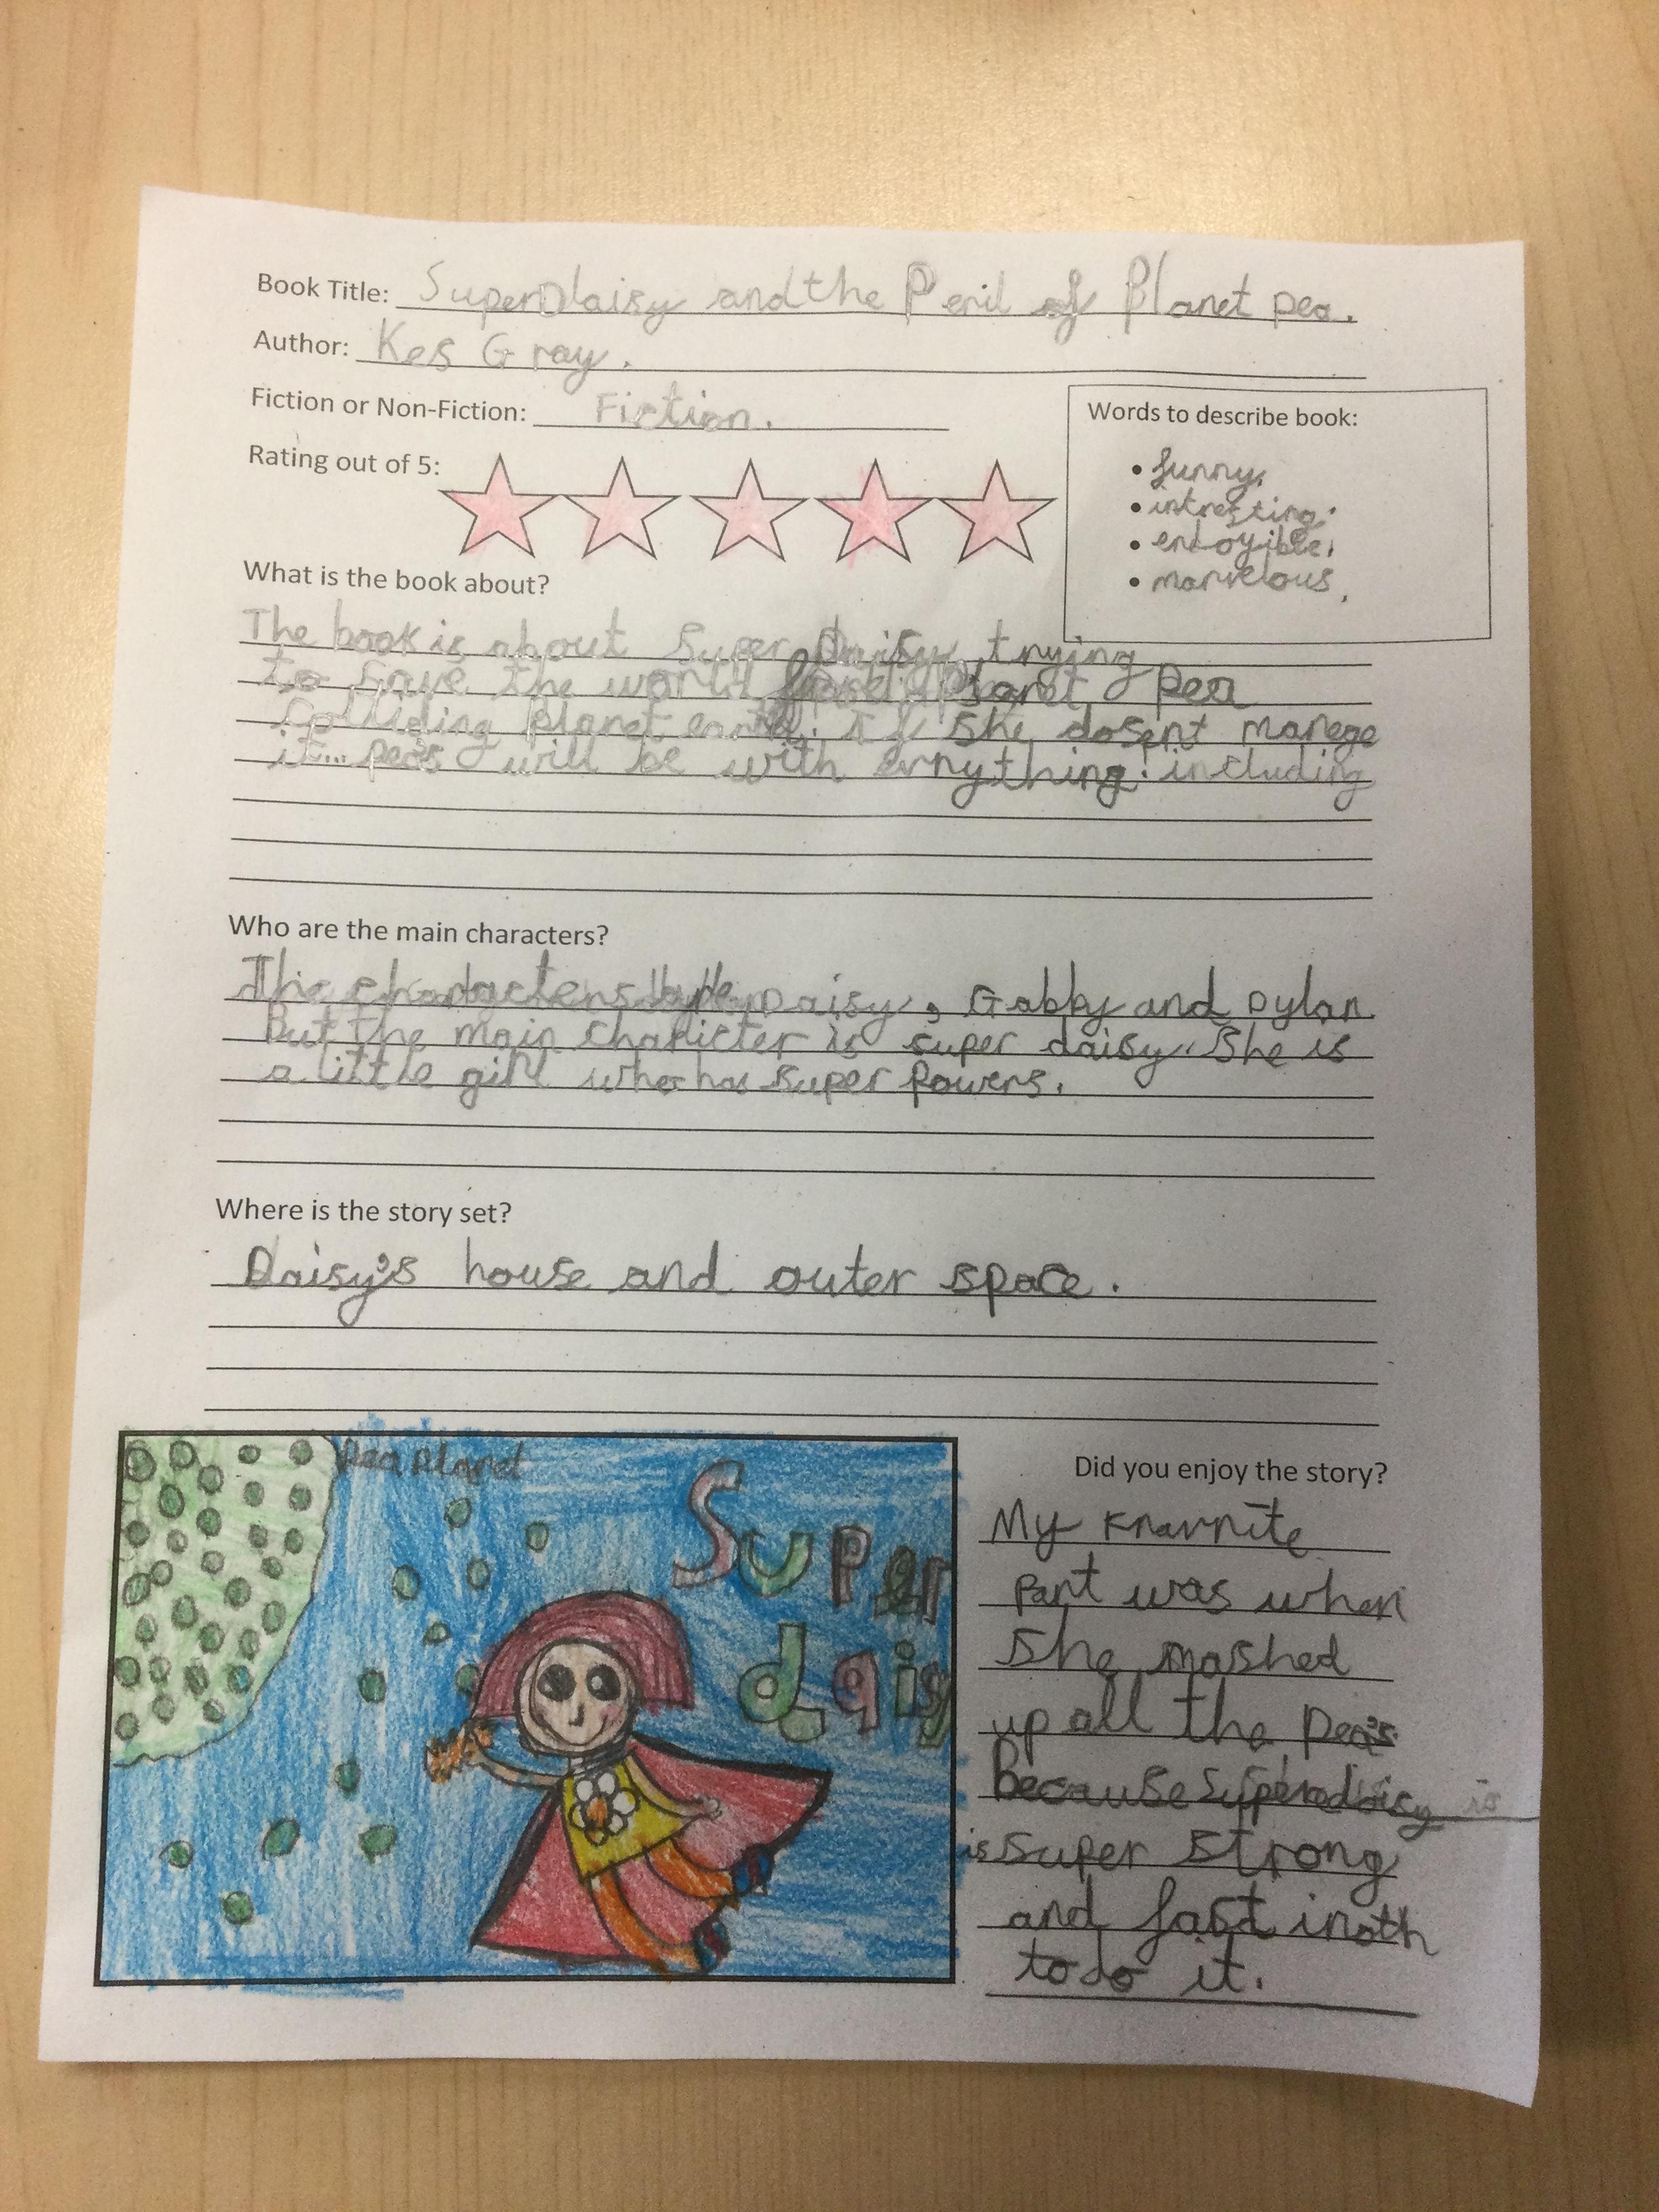 Book Title: SuperDaisy and the Peril of Planet pea.
Author: Kes Gray.
Fiction or Non-Fiction: Fiction.
Rating out of 5:
Words to describe book:
• funny,
• intresting.
• enjoyible,
• marvelous,
What is the book about?
The book is about Super Daisy trying
to save the world Planet pea
colliding planet earth. If she dosent manege
it... pea's will be with evrything! including
Who are the main characters?
The Daisy, Gabby and Dylan
But the main charicter is super daisy. She is
a little girl who has super powers.
Where is the story set?
Daisy's house and outer space.
Pea Planet
Super
daisy
Did you enjoy the story?
My
part was when
she mashed
up all the pea's
because Superdaisy is
is super strong
and fast inoth
to do it.